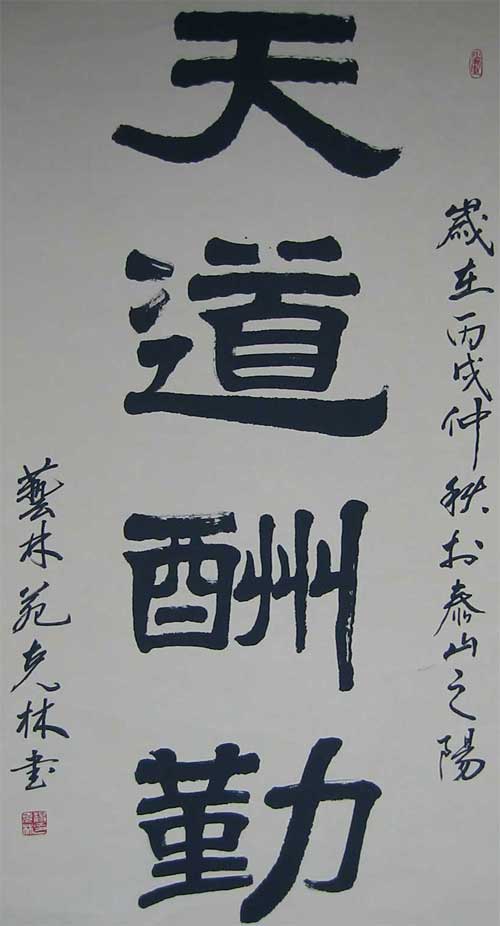 歲在丙戌仲秋於泰山之陽
天道酬勤
藝林苑克林书